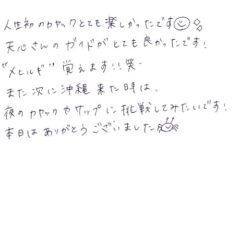 人生初のカヤックとても楽しかったです
天心さんのガイドがとても良かったです!
"メヒルギ"覚えます!!笑
また次に沖縄来た時は、
夜のカヤックやサップに挑戦してみたいです!
本日はありがとうございました